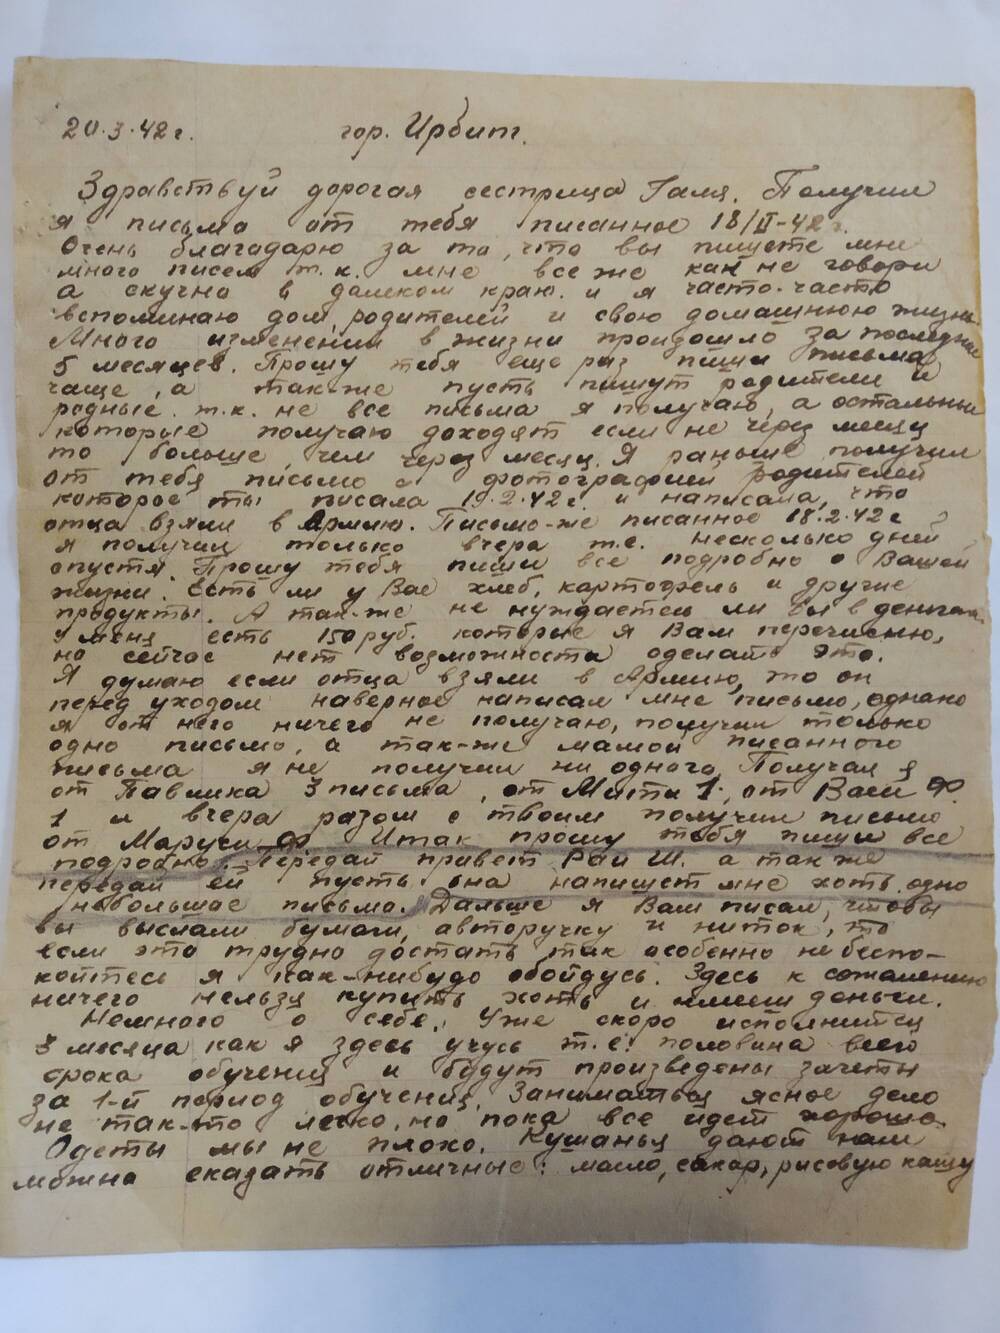 20.3.42 г. гор. Ирбит.
Здравствуй дорогая сестрица Галя. Получил
я письмо от тебя писанное 18/II-42 г.
Очень благодарю за то, что вы пишете мне
много писем т.к. мне все же как не говори
а скучно в далеком краю. и я часто-часто
вспоминаю дом, родителей и свою домашнюю жизнь.
Много изменений в жизни произошло за последние
5 месяцев. Прошу тебя еще раз пиши письма
чаще, а так-же пусть пишут родители и
родные. т.к. не все письма я получаю, а остальные
которые получаю доходят если не через месяц
то больше, чем через месяц. Я раньше получил
от тебя письмо с фотографией родителей
которое ты писала 19.2.42 г. и написала, что
отца взяли в Армию. Письмо-же писанное 18.2.42 г
я получил только вчера т.е. несколько дней
опустя. Прошу тебя пиши все подробно о Вашей
жизни. Есть ли у Вас хлеб, картофель и другие
продукты. А так-же не нуждаетесь ли Вы в деньгах
у меня есть 150 руб. которые я Вам перечислю,
но сейчас нет возможности сделать это.
Я думаю если отца взяли в Армию, то он
перед уходом наверное написал мне письмо, однако
я от него ничего не получаю, получил только
одно письмо, а так-же мамой писанного
письма я не получил ни одного. Получал я
от Павлика 3 письма, от Мити 1, от Васи Ф.
1 и вчера разом с твоим получил письмо
от Маруси Ф. Итак прошу тебя пиши все
подробно. Передай привет Раи Ш. а так же
передай ей пусть она напишет мне хоть одно
небольшое письмо. Дальше я Вам писал, чтобы
вы выслали бумаги, авторучку и ниток, то
если это трудно достать так особенно не беспо-
койтесь я как-нибудь обойдусь. Здесь к сожалению
ничего нельзя купить хоть и имеем деньги.
Немного о себе. Уже скоро исполнится
3 месяца как я здесь учусь т.е. половина всего
срока обучения и будут произведены зачеты
за 1-й период обучения. Заниматься ясное дело
не так-то легко, но пока все идет хорошо.
Одеты мы не плохо. Кушанья дают нам
можно сказать отличные: масло, сахар, рисовую кашу